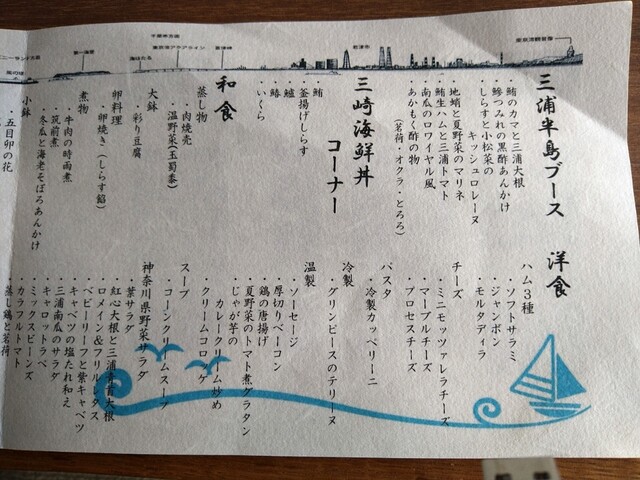 三浦半島ブース
・鮪のカマと三浦大根
・鯵つみれの黒酢あんかけ
・しらすと小松菜の
キッシュロレーヌ
・地蛸と夏野菜のマリネ
・鮪生ハムと三浦トマト
・南瓜のロワイヤル風
・あかもく酢の物
(茗荷・オクラ・とろろ)
三崎海鮮丼
コーナー
・鮪
・釜揚げしらす
・鱸
・鰆
・いくら
和食
蒸し物
・肉焼売
・温野菜(玉蜀黍)
大鉢
・彩り豆腐
卵料理
・卵焼き(しらす餡)
煮物
・牛肉の時雨煮
・筑前煮
・冬瓜と海老そぼろあんかけ
小鉢
・五目卯の花
洋食
ハム3種
・ソフトサラミ
・ジャンボン
・モルタディラ
チーズ
・ミニモッツァレラチーズ
・マーブルチーズ
・プロセスチーズ
パスタ
・冷製カッペリーニ
冷製
・グリンピースのテリーヌ
温製
・ソーセージ
・厚切りベーコン
・鶏の唐揚げ
・夏野菜のトマト煮グラタン
・じゃが芋の
カレークリーム炒め
・クリームコロッケ
スープ
・コーンクリームスープ
神奈川県野菜サラダ
・葉サラダ
・紅心大根と三浦青首大根
・ロメイン&フリルレタス
・ベビーリーフと紫キャベツ
・キャベツの塩たれ和え
・三浦南瓜のサラダ
・キャロットラペ
・ミックスビーンズ
・カラフルトマト
・蒸し鶏と茗荷